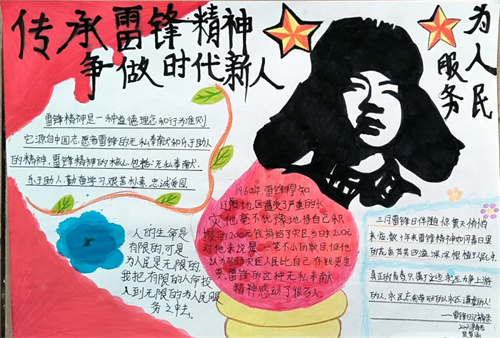 传承雷锋精神
争做时代新人
为人民
服务
雷锋精神是一种道德理念和行为准则
它源自中国志愿者雷锋的无私奉献和乐于助人
的精神,雷锋精神的核心包括无私奉献,
乐于助人,勤奋学习,艰苦朴素,忠诚爱国
人的生命是
有限的,可是
为人民是无限的,
我把有限的人命投
入到无限的为人民服
务之中去。
1960年,雷锋得知
辽阳地区遭受了严重的水
灾,他毫不犹豫地将自己积
攒的200元我捐给了灾民,当时的200元
对他来说是一笔不小的数目,但他
认为帮助灾区人民比自己存钱更重
要,雷锋的这种无私奉献
精神感动了很多人。
三月雷锋日伴随你
来临,数十年来雷锋精神如同春日里
的花香芬芳四溢,深深根植于人心
真正的青春只属于这些永远力争上游
的人,永远
——雷锋日记精选